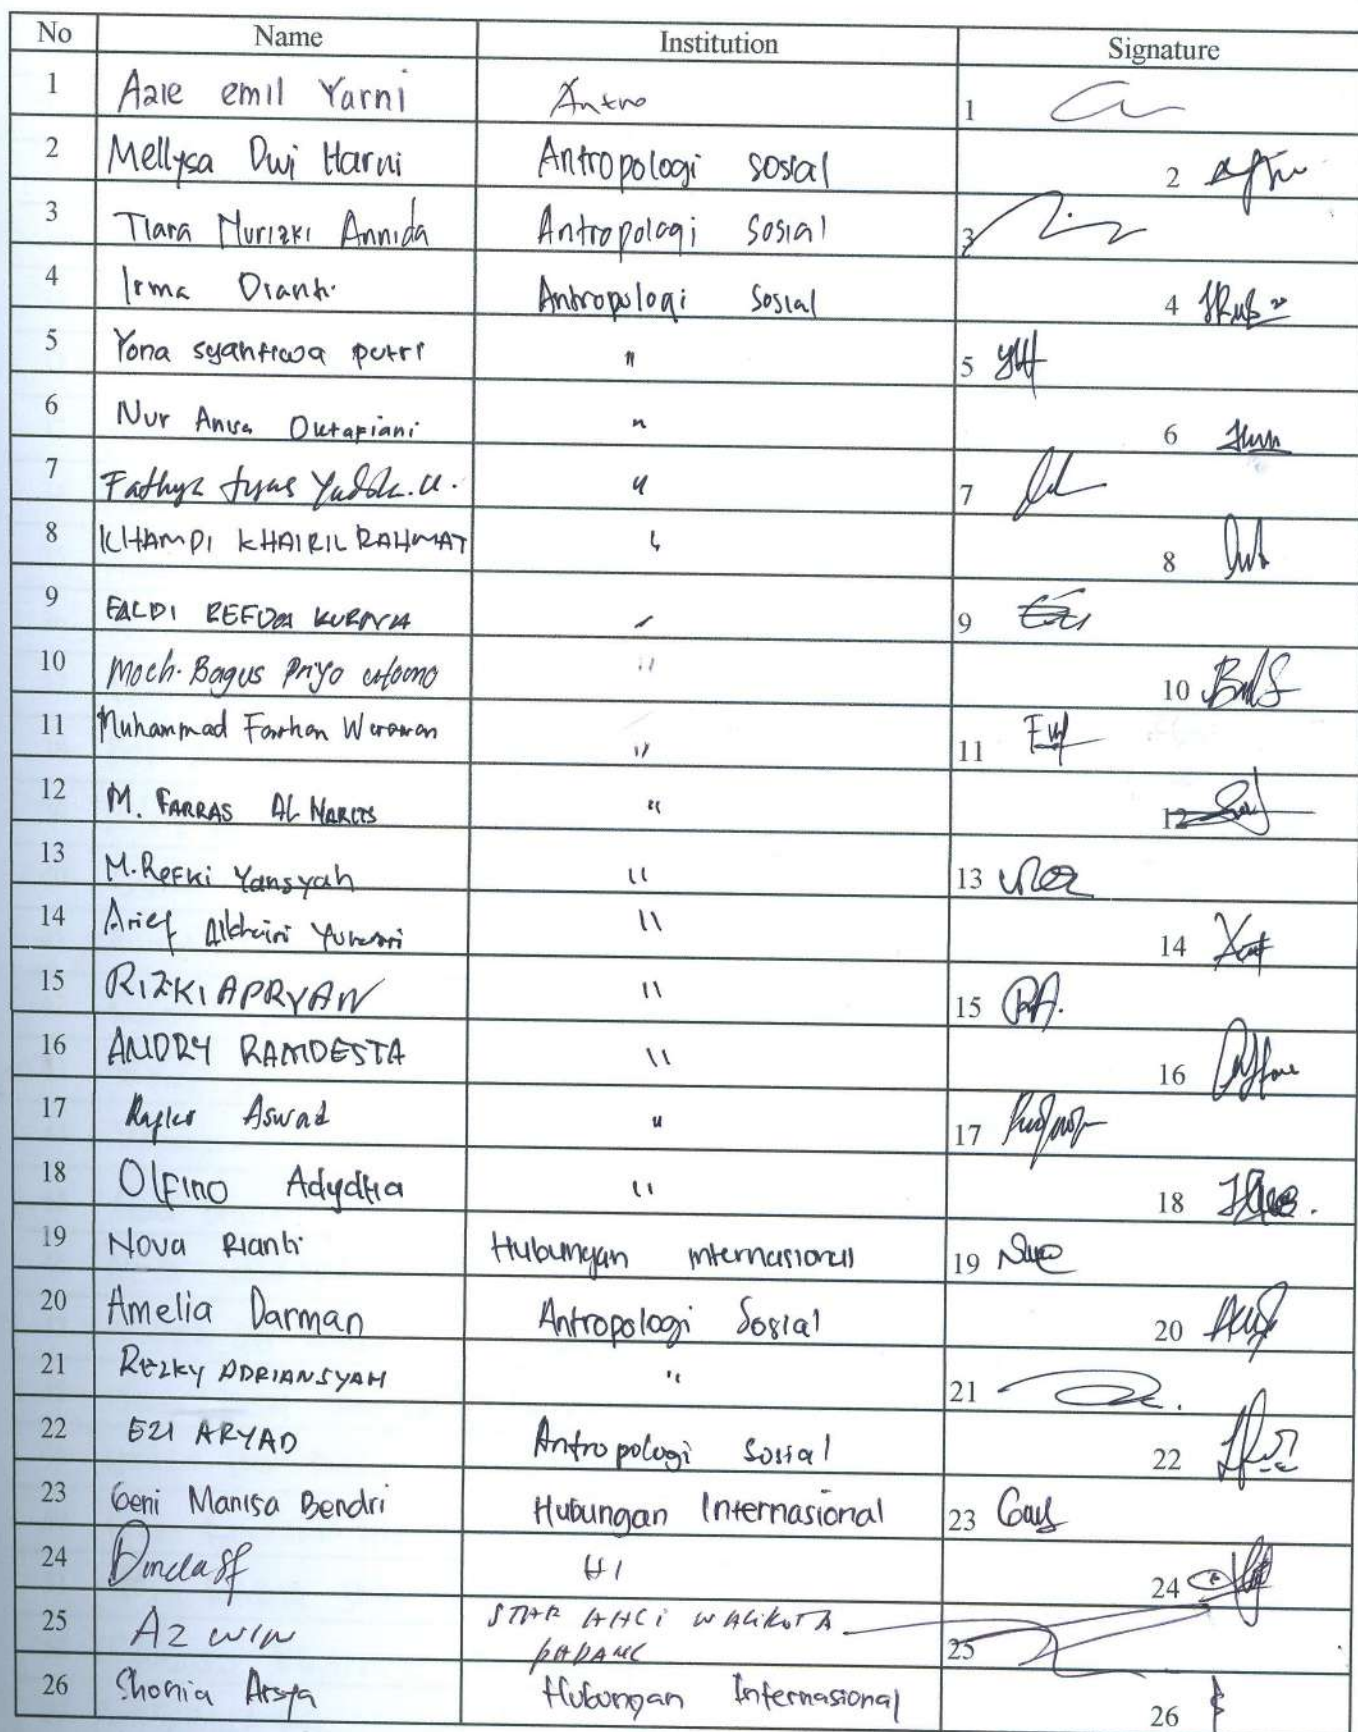 No Name Institution Signature
1 Azie emil Yarni Antro 1
2 Mellysa Dwi Harni Antropologi sosial 2
3 Tiara Nurizki Annida Antropologi Sosial 3
4 Irma Dianti Antropologi Sosial 4
5 Yona syahtiwa putri " 5
6 Nur Anisa Oktapiani " 6
7 Fathya " 7
8 KHAMDI KHAIRIL RAHMAT " 8
9 FALDI REFDOA KURNIA 9
10 Moch. Bagus Priyo utomo " 10
11 Muhammad Farhan Werawan " 11
12 M. FARRAS AL HARITS " 12
13 M. Refki Yansyah " 13
14 Arief Alkhairi Yuhendri " 14
15 RIZKI APRYAN " 15 RA.
16 ANDRY RAMDESTA " 16
17 Aswad " 17
18 Olfino Adydtia " 18
19 Nova Rianti Hubungan internasional 19
20 Amelia Darman Antropologi Sosial 20
21 REZKY ADRIANSYAH " 21
22 EZI ARYAD Antropologi Sosial 22
23 Geni Manisa Bendri Hubungan Internasional 23
24 HI 24
25 AZWIN STAF AHLI WALIKOTA 25
PADANG
26 Shonia Arsya Hubungan Internasional 26